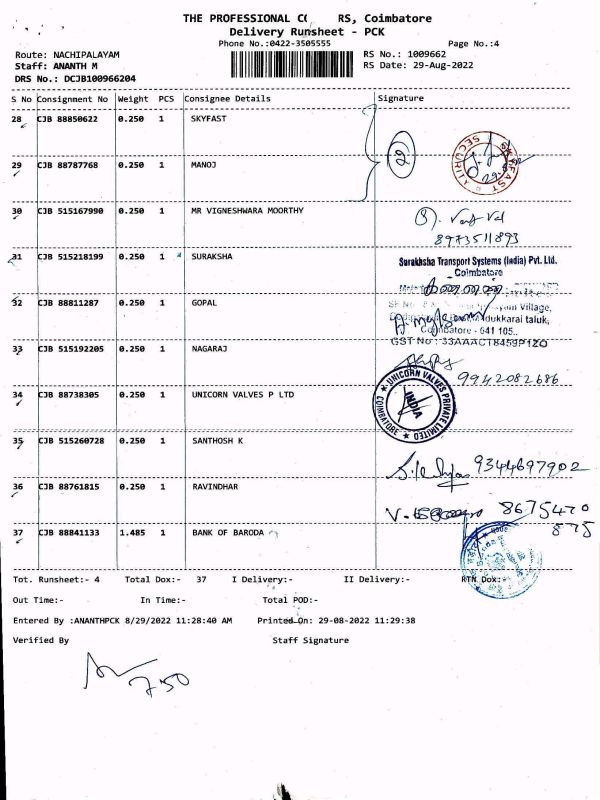 THE PROFESSIONAL CO RS, Coimbatore
Delivery Runsheet - PCK
Phone No.:0422-3505555
Page No.:4
Route: NACHIPALAYAM
RS No.: 1009662
Staff: ANANTH M
RS Date: 29-Aug-2022
DRS No.: DCJB100966204
S No Consignment No Weight PCS Consignee Details Signature
28 CJB 88850622 0.250 1 SKYFAST
29 CJB 88787768 0.250 1 MANOJ
2
SKYFAST SECURIT
30 CJB 515167990 0.250 1 MR VIGNESHWARA MOORTHY
8973511893
31 CJB 515218199 0.250 1 SURAKSHA
Surakhsha Transport Systems (India) Pvt. Ltd.
Coimbatore
32 CJB 88811287 0.250 1 GOPAL
Village,
dukkarai taluk,
Coimbatore - 641 105..
33 CJB 515192205 0.250 1 NAGARAJ
GST No : 33AAACT8459P1ZO
9942082686
34 CJB 88738305 0.250 1 UNICORN VALVES P LTD
UNICORN VALVES PRIVATE LIMITED
COIMBATORE
INDIA
35 CJB 515260728 0.250 1 SANTHOSH K
9344697902
36 CJB 88761815 0.250 1 RAVINDHAR
8675470
875
37 CJB 88841133 1.485 1 BANK OF BARODA
Tot. Runsheet:- 4 Total Dox:- 37 I Delivery:- II Delivery:- RTN Dox:-
Out Time:- In Time:- Total POD:-
Entered By :ANANTHPCK 8/29/2022 11:28:40 AM Printed On: 29-08-2022 11:29:38
Verified By Staff Signature
750